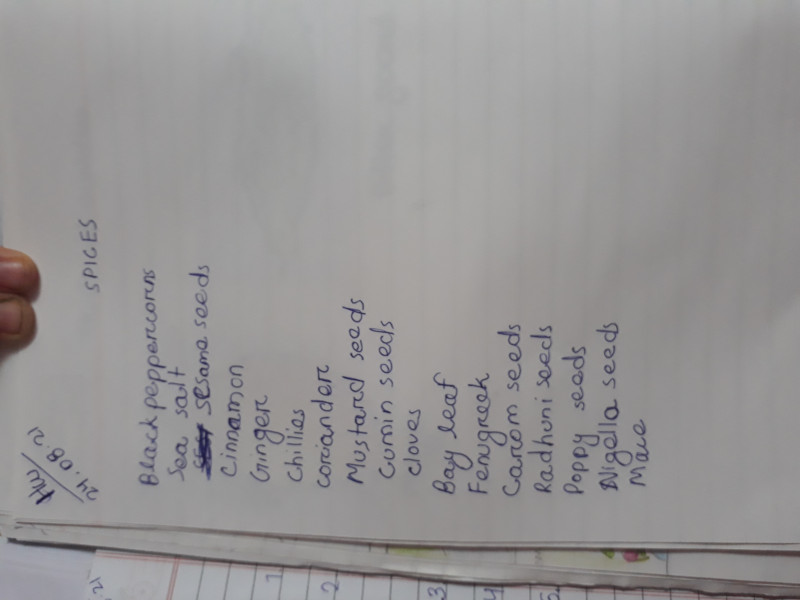 24.08.21
SPICES
Blackpeppercorns
Sea salt
sesame seeds
Cinnamon
Ginger
Chillies
coriander
Mustard seeds
Cumin seeds
cloves
Bay leaf
Fenugreek
Carom seeds
Radhuni seeds
Poppy seeds
Nigella seeds
Mace
1
2
3
4
5.